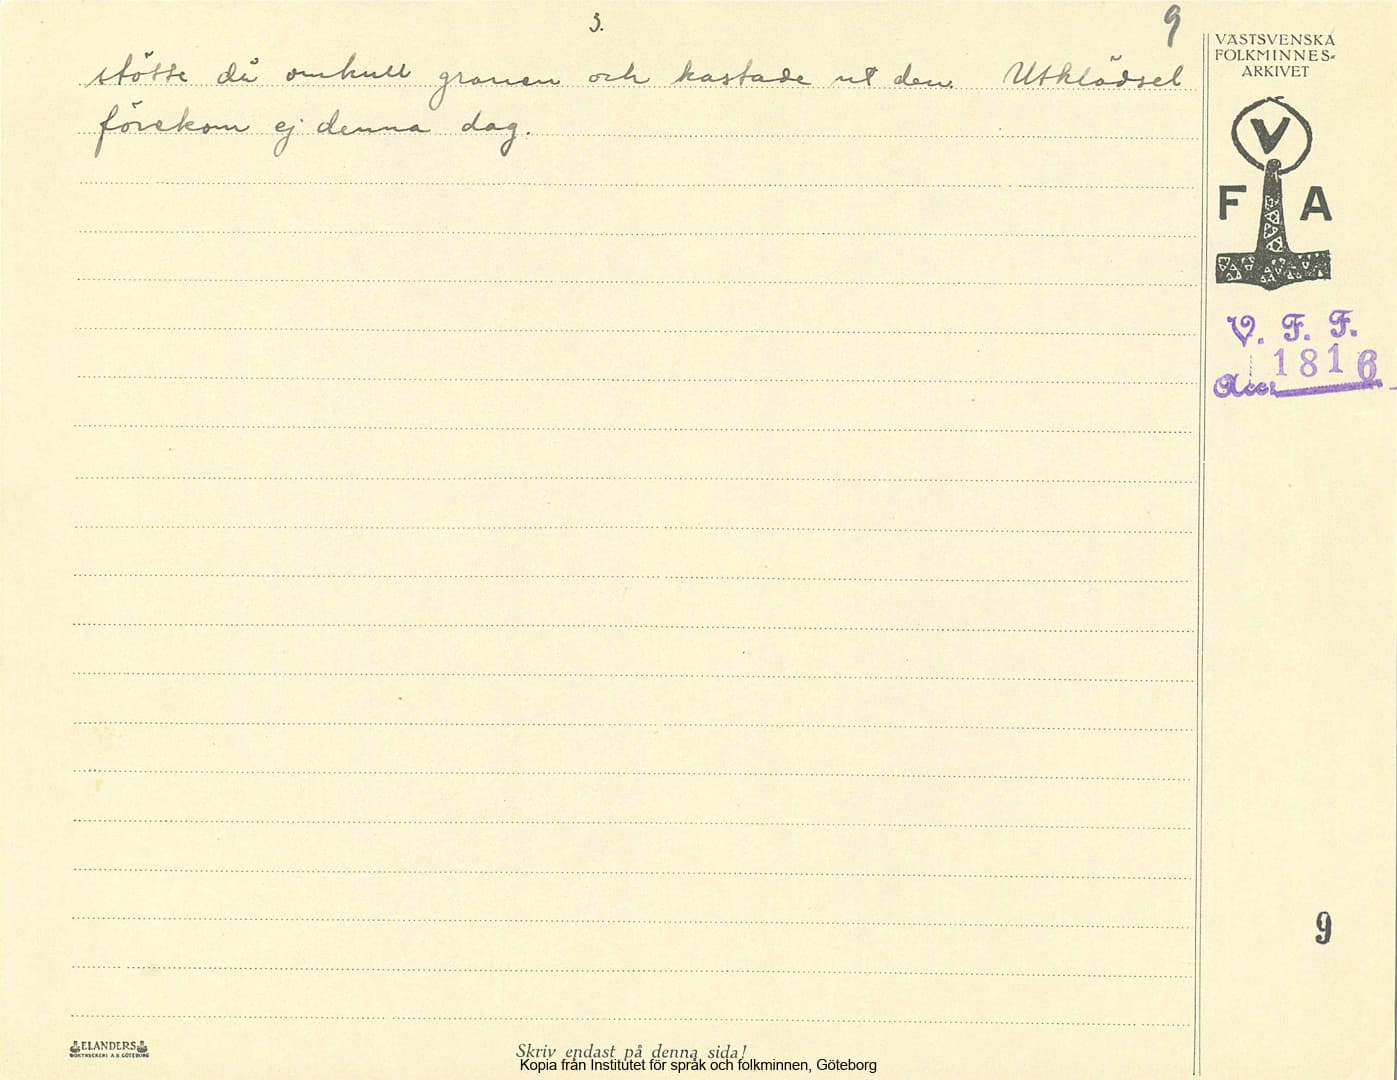 3.
9
stötte då omkull granen och kastade ut den. Utklädsel
förekom ej denna dag.
VÄSTSVENSKA
FOLKMINNES-
ARKIVET
V
F A
V. F. F.
1816
Acc.
9
ELANDERS
BOKTRYCKERI A.B. GÖTEBORG
Skriv endast på denna sida!
Kopia från Institutet för språk och folkminnen, Göteborg